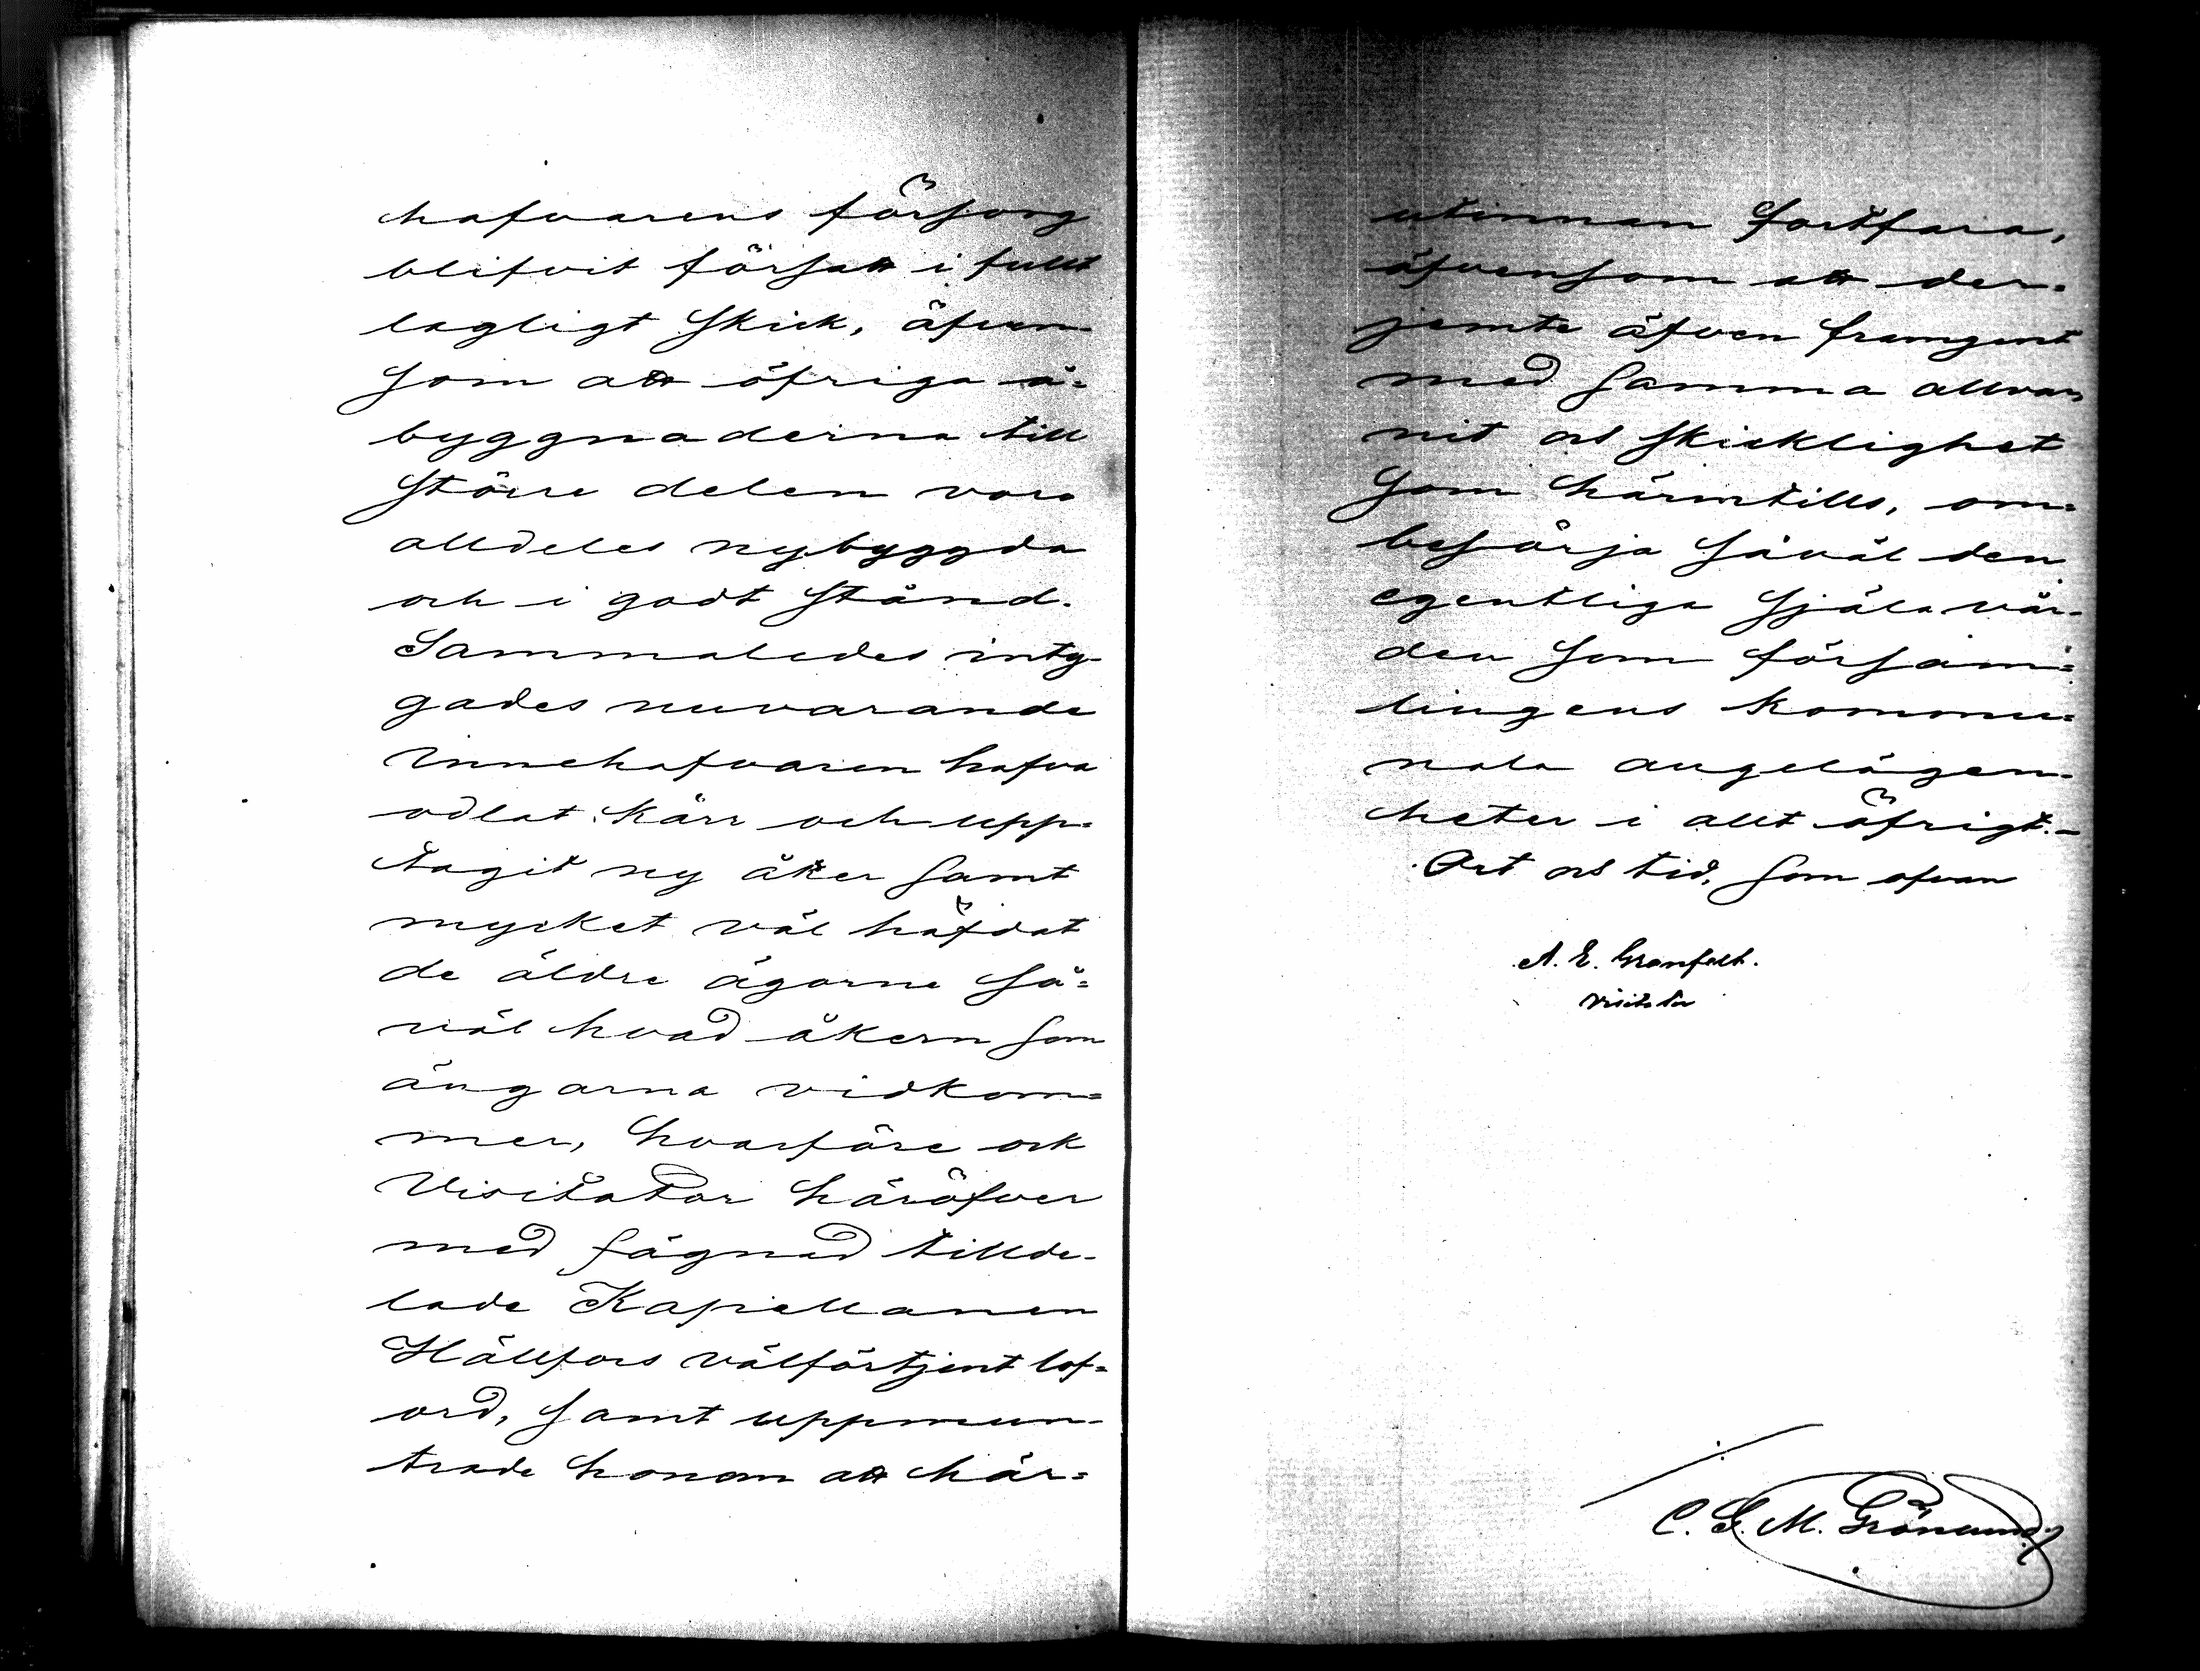 hafvarens försorg
blifvit försatt i fullt
lagligt skick, äfven-
som att öfriga å=
byggnaderna till
större delen voro
alldeles nybyggda
och i godt stånd.
Sammaledes intyg-
gades nuvarande
innehafvaren hafva
odlat kärr och upp-
tagit ny åker samt
mycket väl häfdat
de äldre ägorne så=
väl hvad åkern som
ängarna vidkom=
mer, hvarföre ock
Visitator häröfver
med fägnad tillde-
lade Kapellanen
Hällfors välförtjent lof=
ord, samt uppmun-
trade honom att här=
utinnan fortfara,
äfvensom att der-
jemte äfven framgent
med samma allvar,
nit och skicklighet
som härintills, om=
besörja såväl den
egentliga själavår-
den som försam=
lingens kommu=
nala angelägen-
heter i allt öfrigt.-
Ort och tid, som ofvan
A. E. Granfelt.
Visitator
C. G. M. Grönlund